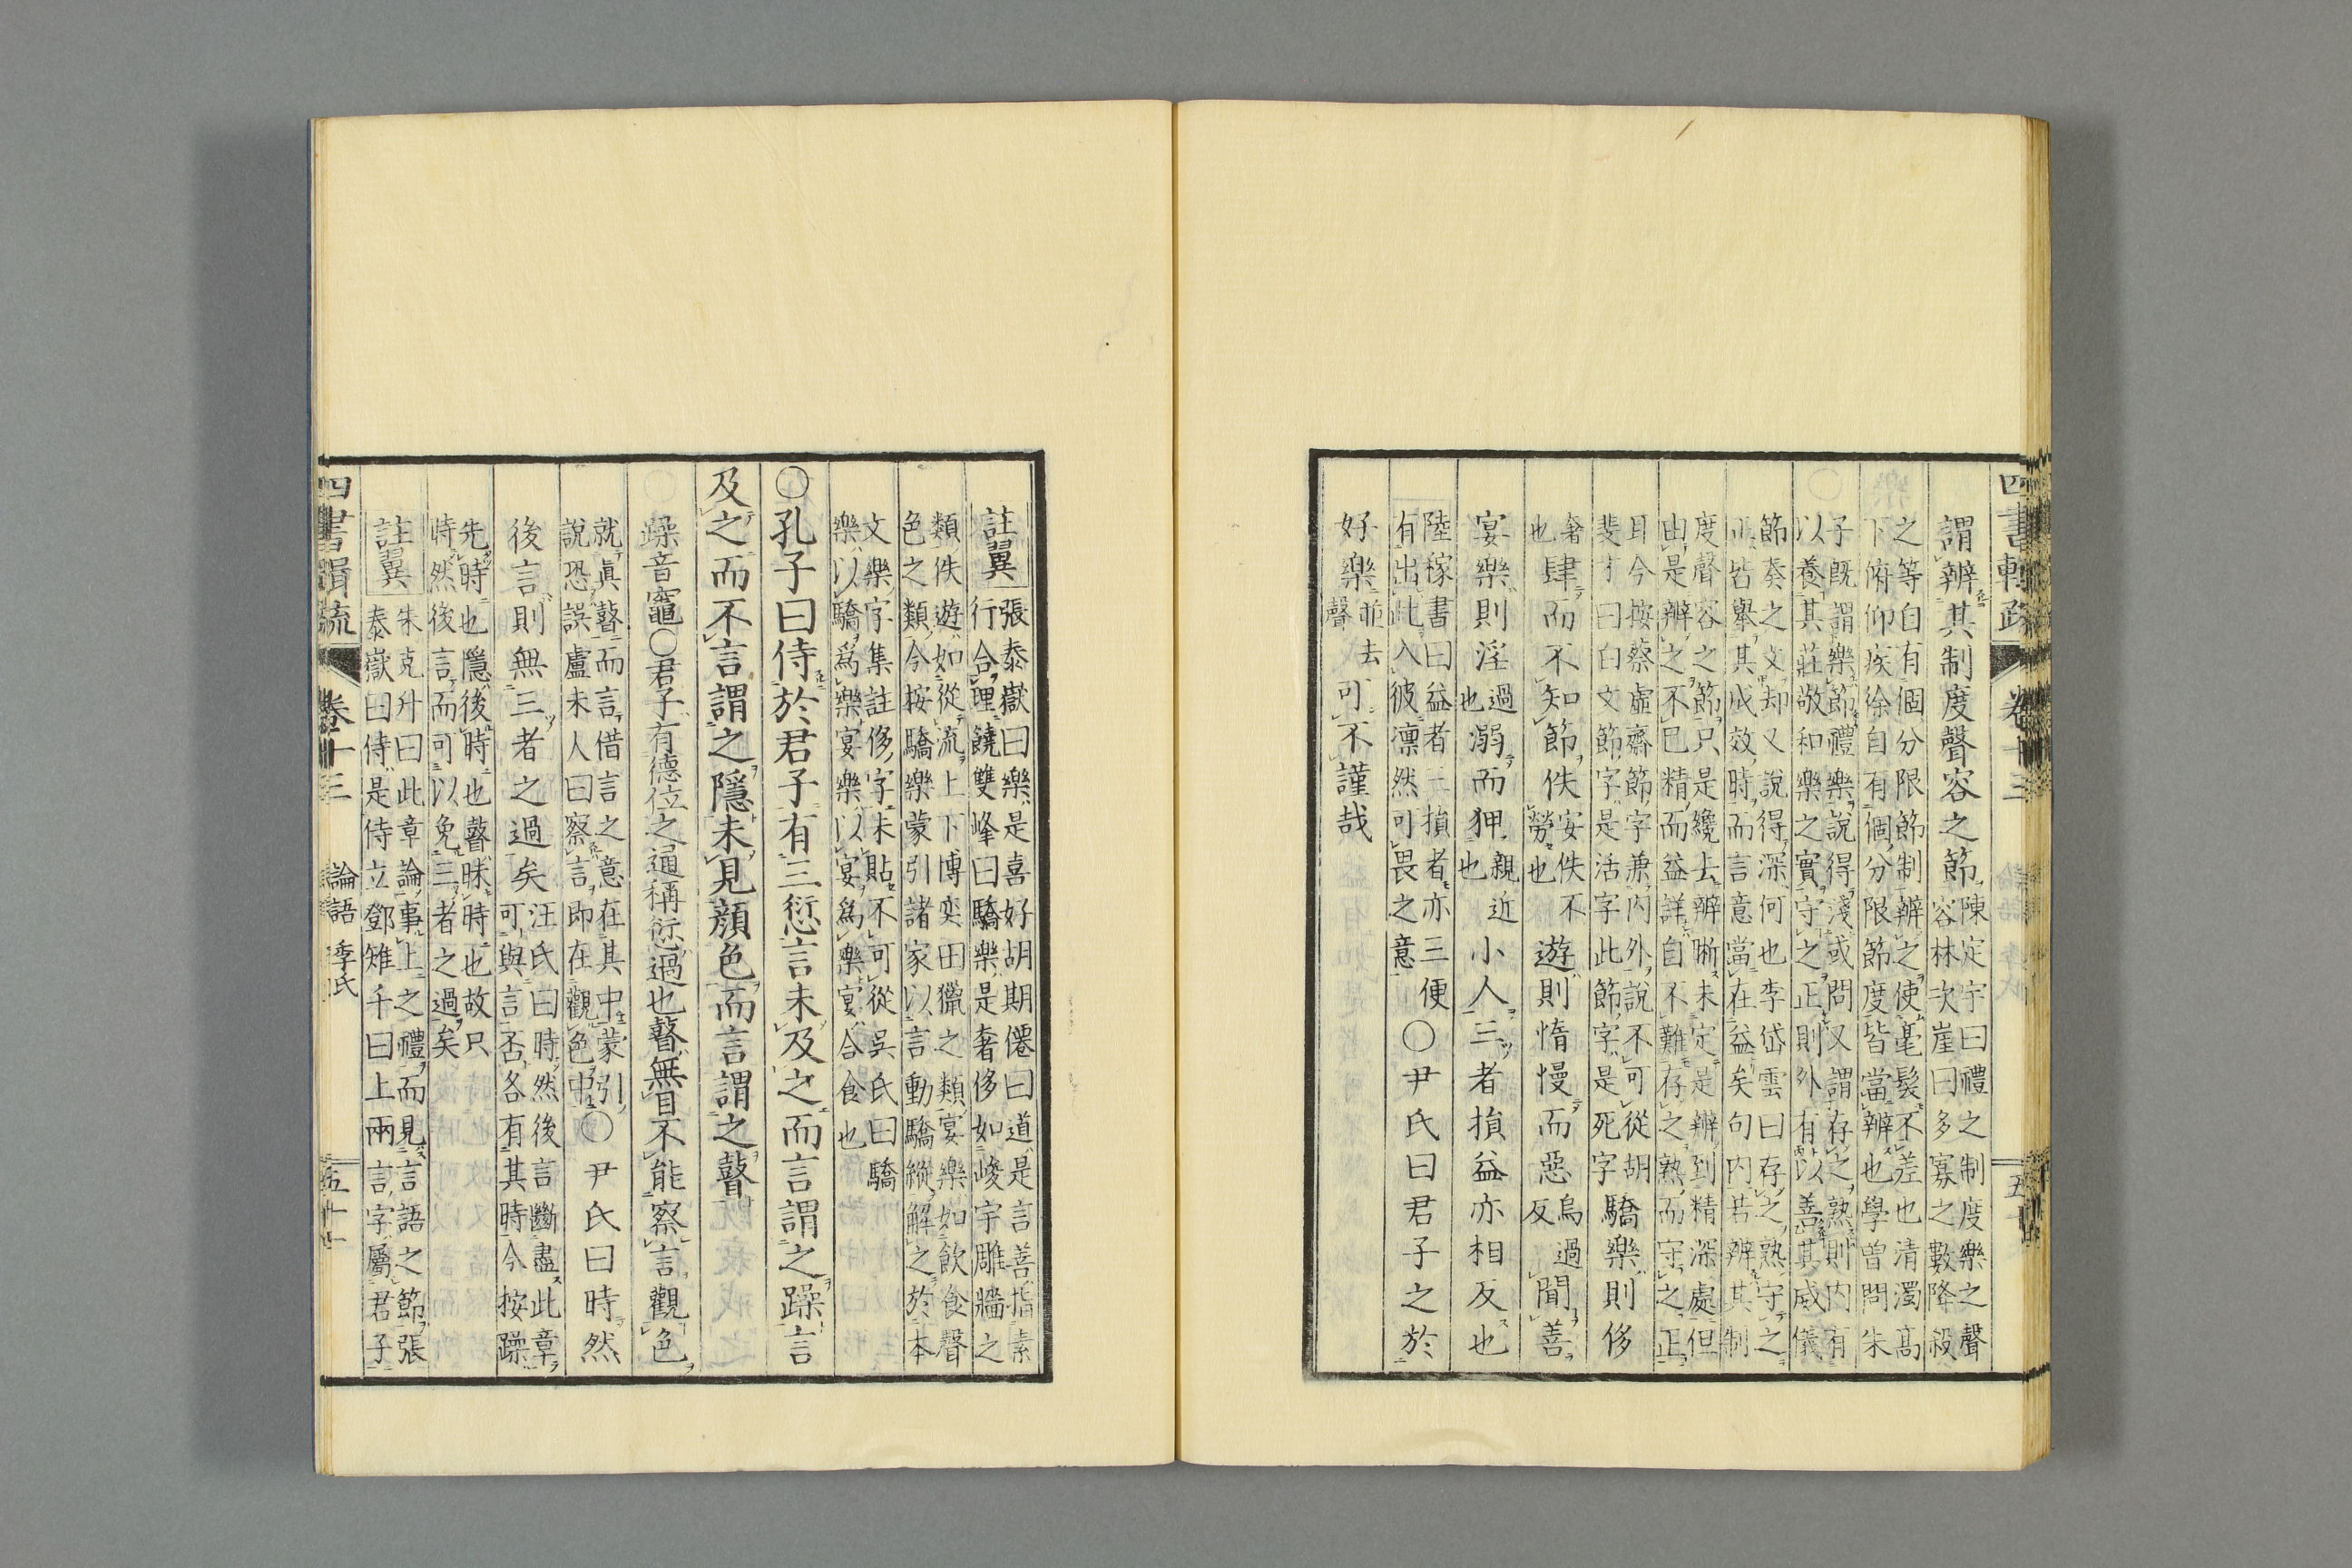 謂辨其制度聲容之節
陳定宇曰禮之制度樂之聲
容林次崖曰多寡之數降殺
之等自有個分限節制辨之使毫髮不差也清濁高
下俯仰疾徐自有個分限節度皆當辨也學曾問朱
子既謂樂節禮樂說得淺或問又謂存之熟則内有
以養其莊敬和樂之實守之正則外有以善其威儀
節奏之文却又說得深何也李岱雲曰存之熟守之
正皆舉其成效時而言意當在益矣句内若辨其制
度聲容之節只是纔去辨晰未定是辨到精深處但
由是辨之不已精而益詳自不難存之熟而守之正
耳今按蔡虛齋節字兼内外說不可從胡
斐才曰白文節字是活字此節字是死字
驕樂則侈
奢
也
肆而不知節佚
安佚不
勞也
遊則惰慢而惡
烏過
反
聞善
宴樂則淫
過
也
溺而狎
親近
也
小人三者損益亦相反也
陸稼書曰益者三損者亦三便
有出此入彼凛然可畏之意
〇尹氏曰君子之於
好樂
並去
聲
可不謹哉
四書輯疏
卷十三
註翼
張泰嶽曰樂是喜好胡期僊曰道是言善指素
行合理饒雙峰曰驕樂是奢侈如峻宇雕牆之
類佚遊如從流上下博奕田獵之類宴樂如飲食聲
色之類今按驕樂蒙引諸家以言動驕縱解之於本
文樂字集註侈字未貼不可從吳氏曰驕
樂以驕爲樂宴樂以宴爲樂宴合食也
〇孔子曰侍於君子有三愆言未及之而言謂之躁言
及之而不言謂之隱未見顏色而言謂之瞽
躁音竈〇君子有德位之通稱愆過也瞽無目不能察言觀色
就眞瞽而言借言之意在其中蒙引
說恐誤盧未人曰察言即在觀色中
〇尹氏曰時然
後言則無三者之過矣
汪氏曰時然後言斷盡此章
可與言否各有其時今按躁
先時也隱後時也瞽昧時也故只
時然後言而可以免三者之過矣
註翼
朱克升曰此章論事上之禮而見言語之節張
泰嶽曰侍是侍立鄧雉千曰上兩言字屬君子
四書輯疏
卷十三
論語 季氏